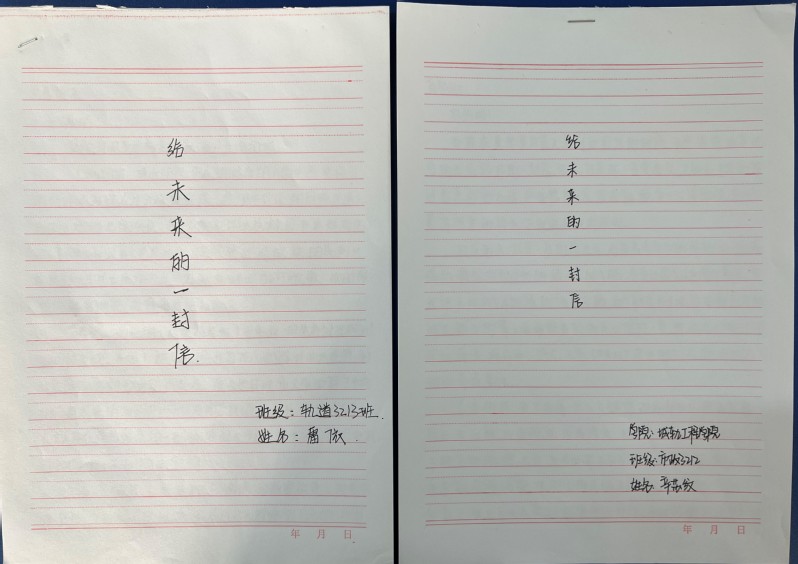 给未来的一封信.
班级：轨道3213班.
姓名：
年 月 日
给未来的一封信
学院：城轨工程学院
班级：市政3212
姓名：
年 月 日